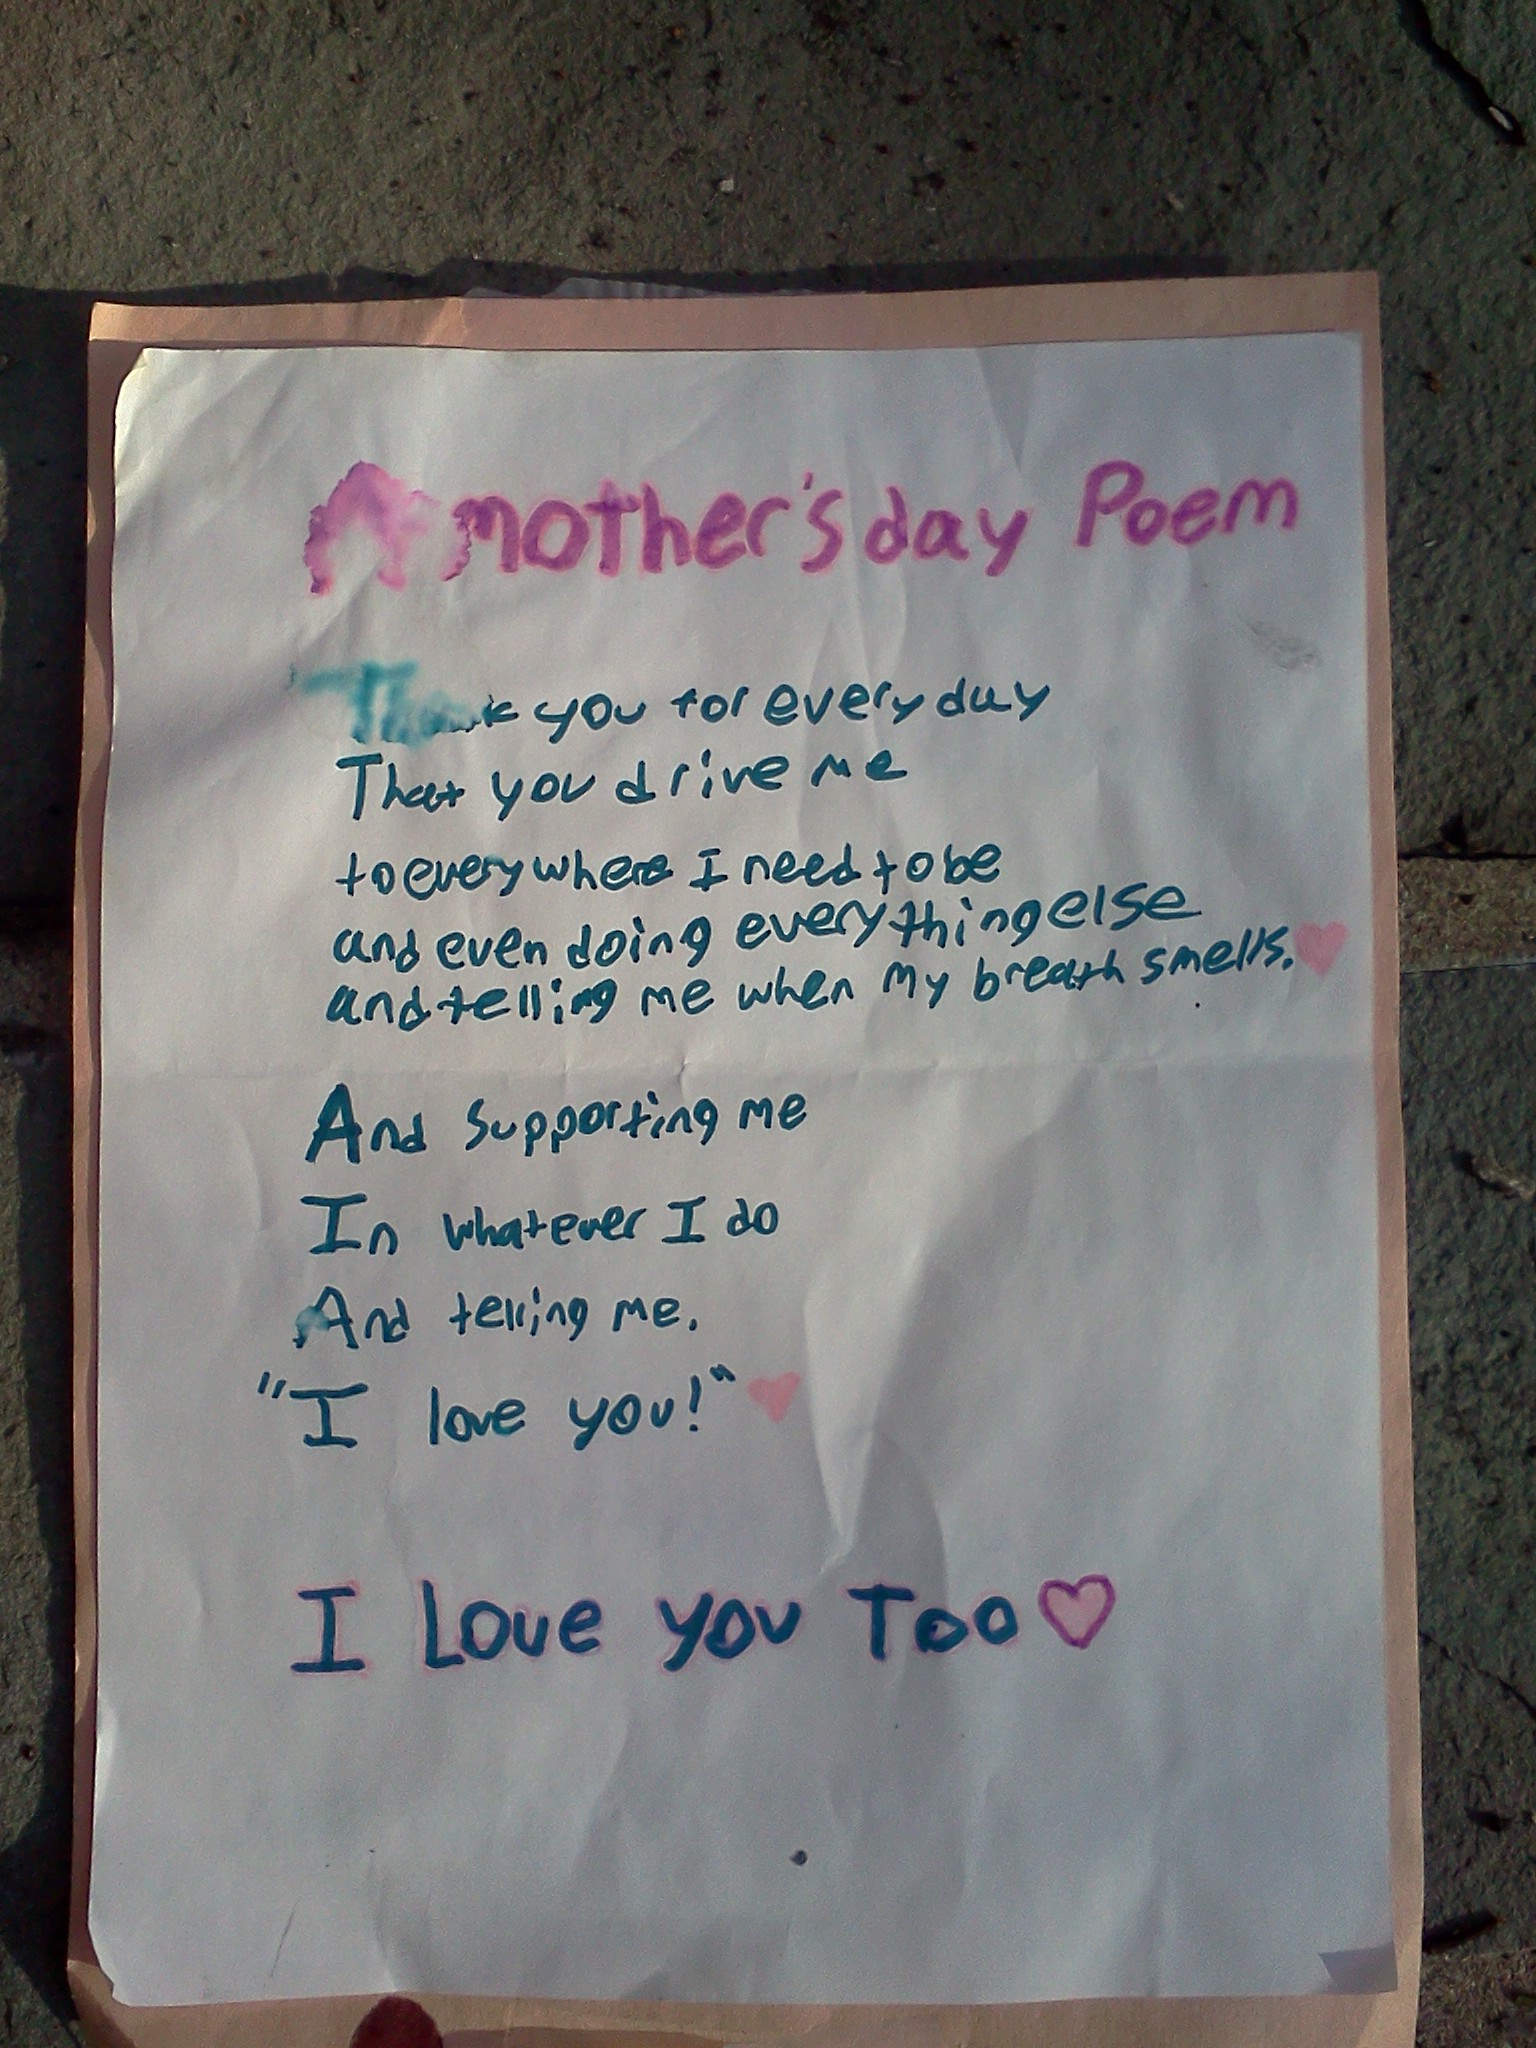 A mother's day Poem
Thank you for every day
That you drive me
to everywhere I need to be
and even doing everything else
and telling me when my breath smells.
And supporting me
In whatever I do
And telling me.
"I love you!"
I Love you Too